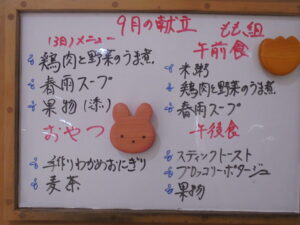 9月の献立
13日メニュー
鶏肉と野菜のうま煮
春雨スープ
果物
おやつ
手作りわかめおにぎり
麦茶
もも組
午前食
米粥
鶏肉と野菜のうま煮
春雨スープ
午後食
スティックトースト
ブロッコリーポタージュ
果物